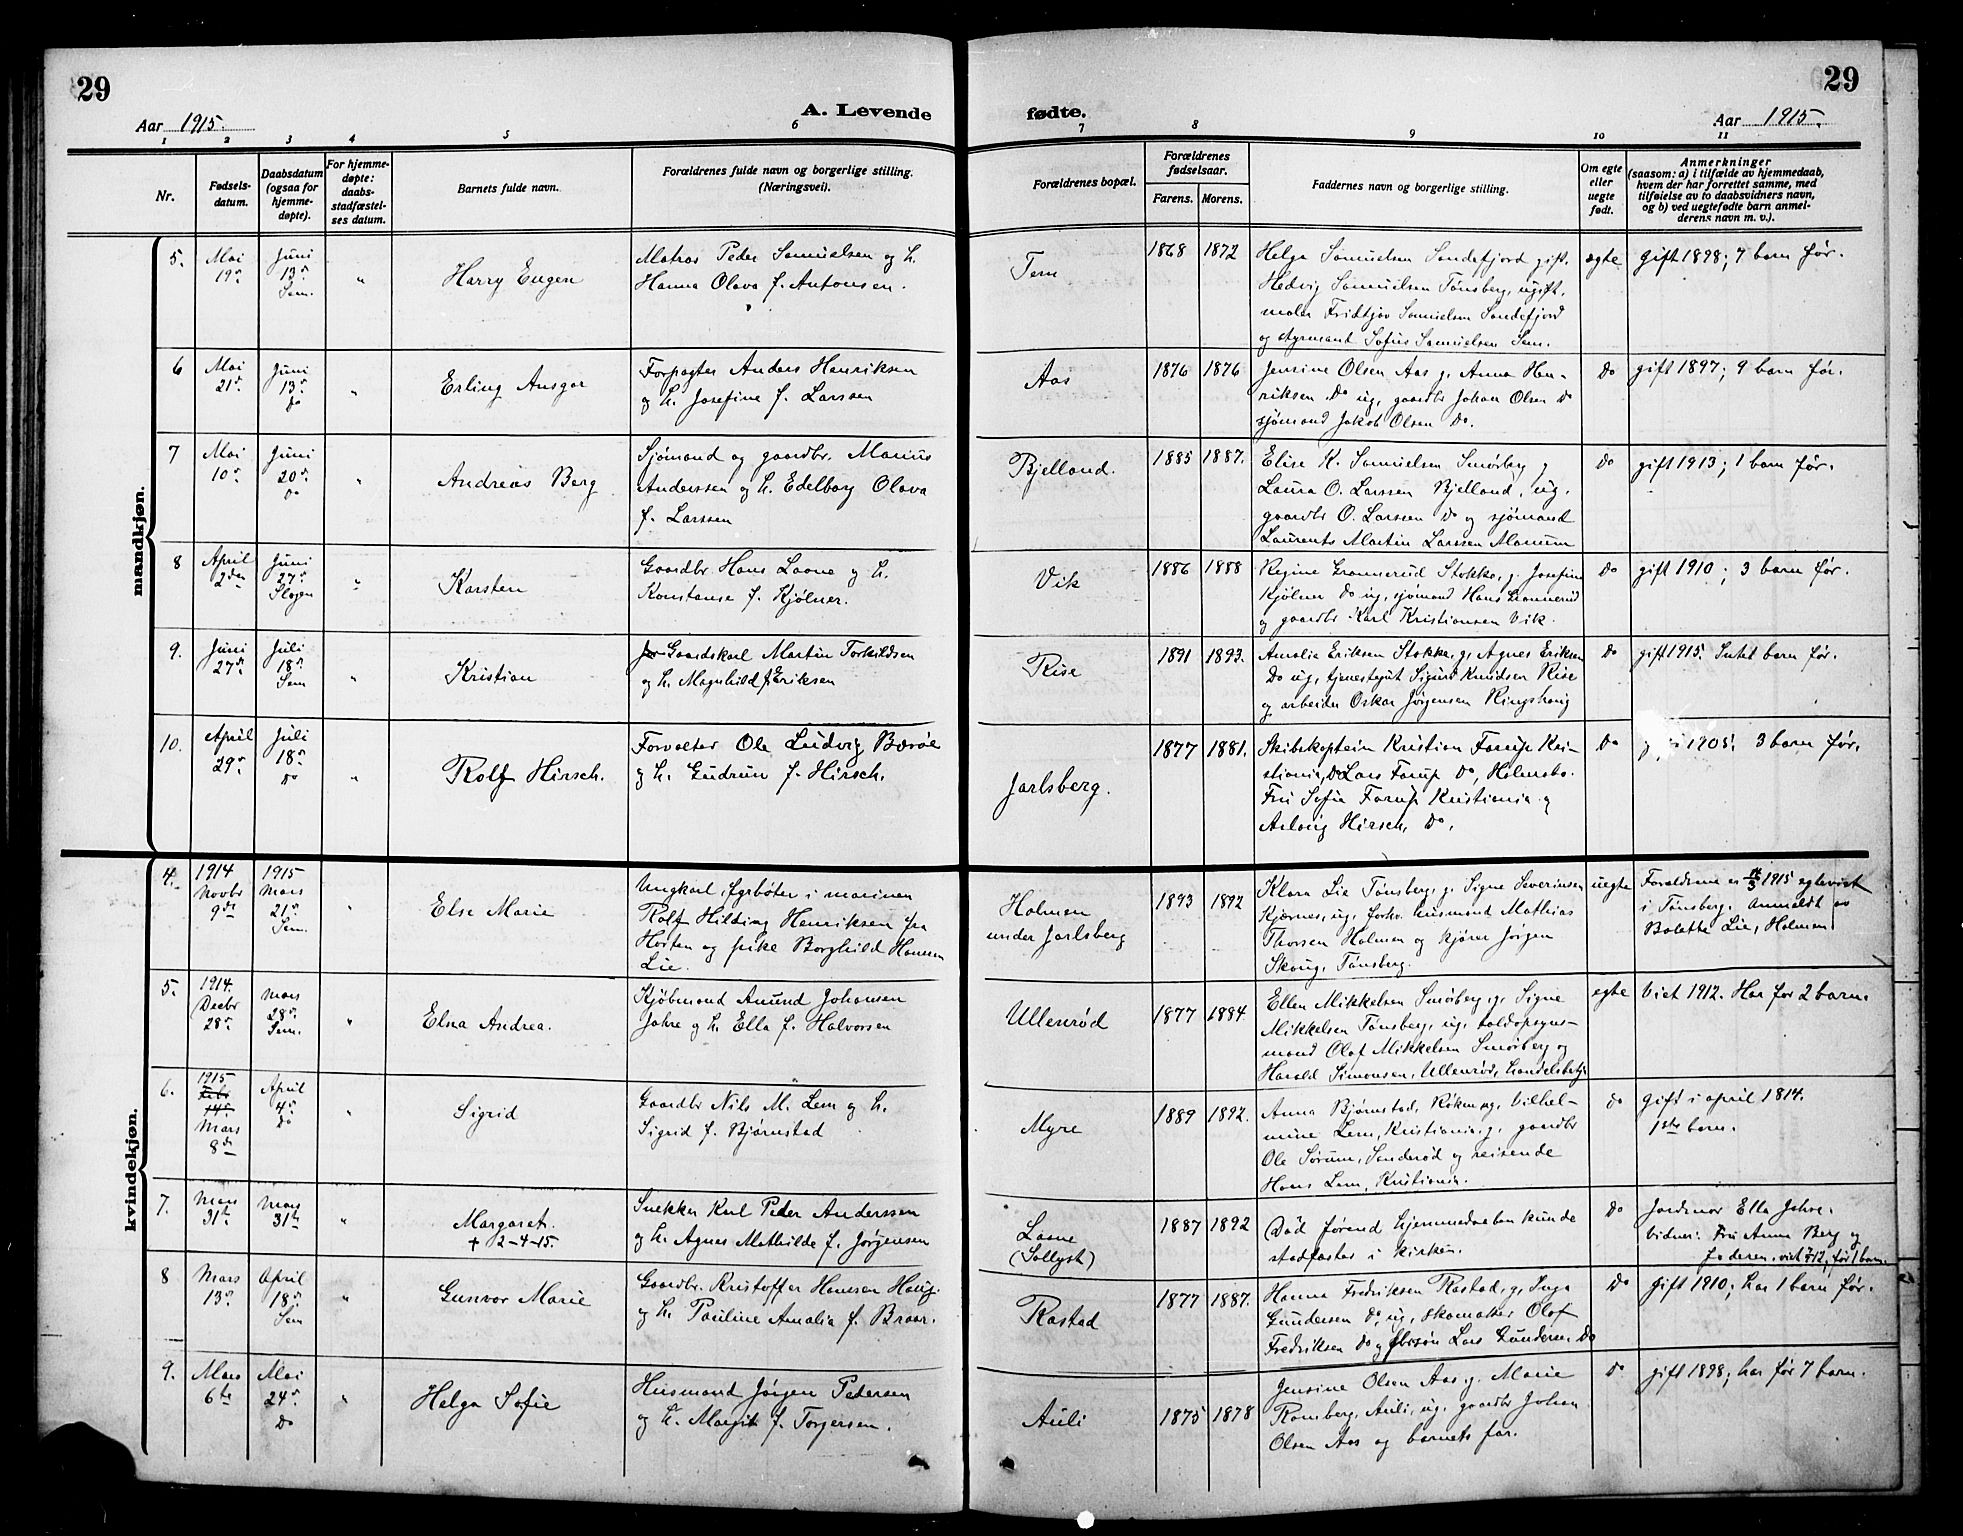 29
29
A. Levende fødte.
Aar 1915.
Aar 1915.
1 2 3 4 5 6 7 8 9 10 11
Nr.
Fødsels-
datum.
Daabsdatum
(ogsaa for
hjemme-
døpte).
For hjemme-
døpte:
daabs-
stadfæstel-
ses datum.
Barnets fulde navn.
Forældrenes fulde navn og borgerlige stilling.
(Næringsvei).
Forældrenes bopæl.
Forældrenes
fødselsaar.
Farens. Morens.
Faddernes navn og borgerlige stilling.
Om egte
eller
uegte
født.
Anmerkninger
(saasom: a) i tilfælde av hjemmedaab,
hvem der har forrettet samme, med
tilføielse av to daabsvidners navn,
og b) ved uegtefødte barn anmel-
derens navn m. v.).
mandkjøn.
5.
Mai
19de
Juni
13de
Sem.
"
Harry Eugen
Matros Peder Samuelsen og h.
Hanna Olava f. Antonsen.
Tem
1868 1872
Helga Samuelsen Sandefjord gift.
Hedvig Samuelsen Tønsberg, ugift,
maler Fridtjov Samuelsen Sandefjord
og styrmand Sofus Samuelsen Sem.
ægte
Gift 1898; 7 barn før.
6
Mai
21de
Juni
13de
do
"
Erling Ansgar
Forpagter Anders Henriksen
og h. Josefine f. Larssen
Aas
1876 1876
Jensine Olsen Aas g. Anna Hen-
riksen Do ug, gaardbr Johan Olsen Do
sjømand Jakob Olsen Do.
Do
gift 1897; 9 barn før.
7
Mai
10de
Juni
20de
Do
"
Andreas Berg
Sjømand og gaardbr. Marius
Anderssen og h. Edelborg Olava
f. Larssen
Bjelland.
1885 1887.
Elise K. Samuelsen Smørberg g
Laura O. Larssen Bjelland, ug,
gaardbr O. Larssen Do og sjømand
Laurents Martin Larssen Manum
Do
gift 1913; 1 barn før.
8
April
2den
Juni
27de
Slagen
"
Karsten
Gaardbr Hans Laane og h.
Konstanse f. Kjølner.
Vik
1886 1888
Regine Grannerud Stokke, g, Josefine
Kjølner Do ug, sjømand Hans Grannerud
og gaardbr Karl Kristiansen Vik.
Do
gift 1910; 3 barn før.
9.
Juni
27de
Juli
18de
Sem
"
Kristian
Gaardskarl Martin Torkildsen
og h. Magnhild f. Eriksen
Rise
1891 1893.
Amalie Eriksen Stokke, g, Agnes Eriksen
Do ug, tjenestegut Sigurd Knudsen Rise
og arbeider Oskar Jørgensen Ringshaug
Do
gift 1915. Intet barn før.
10.
April
29de
Juli
18de
Do
"
Rolf Hirsch.
Forvalter Ole Ludvig Bærøe
og h. Gudrun f. Hirsch.
Jarlsberg.
1877 1881.
Skibskaptein Kristian Farup Kri-
stiania, Lars Farup Do, Holmsbo.
Fru Sofie Farup Kristiania g
Aslaug Hirsch, Do.
Do
1905. 3 barn før.
kvindekjøn.
4.
1914
Novbr
9de
1915
Mars
21de
Sem.
"
Else Marie
Ungkarl, fyrbøter i marinen
Rolf Hilding Henriksen fra
Horten og pike Borghild Hansen
Lie.
Holmen
under Jarlsberg
1893 1892
Klara Lie Tønsberg, g, Signe Severinsen
Kjærnes, ug, forhv. husmand Mathias
Thorsen Holmen og kjører Jørgen
Skaug, Tønsberg.
uegte
Forældrene er 14/3 1915 egteviet
i Tønsberg. Anmeldt av
Bolette Lie, Holmen
5.
1914.
Decbr
28de
Mars
28de
Sem.
"
Elna Andrea.
Kjøbmand Amund Johansen
Jahre og h. Ella f. Halvorsen
Ullenrød
1877 1884.
Ellen Mikkelsen Smørberg, g, Signe
Mikkelsen Tønsberg, ug, toldopsyns-
mand Olaf Mikkelsen Smørberg og
Harald Simonsen, Ullenrød, handelsbetj.
egte
Viet 1912. Har før 2 barn.
6.
1915
Febr
14de
Mars
8de
April
4de
Do
"
Sigrid
Gaardbr Nils M. Lem og h.
Sigrid f. Bjørnstad
Myre
1889 1892.
Anna Bjørnstad, Røken, g, Vilhel-
mine Lem, Kristiania, g, gaardbr
Ole Sørum, Sanderød og reisende
Hans Lem, Kristiania.
do
Gift i april 1814.
1ste barn.
7.
Mars
31te
Mars
31te
"
Margaret.
+ 2-4-15.
Snekker Karl Peder Anderssen
og h. Agnes Mathilde f. Jørgensen
Laane
(Sollyst)
1887 1892
Død førend hjemmedaaben kunde
stadfæstes i kirken.
Do
Jordmor Ella Jahre.
Vidner: Fru Anna Berg og
Faderen. viet 7/12, før 1 barn.
8
Mars
13de
April
18de
Sem
"
Gunvor Marie
Gaardbr. Kristoffer Hansen Haug.
og h. Pauline Amalia f. Braar.
Rastad
1877 1887.
Hanna Fredriksen Rastad, g, Inga
Gundersen Do, ug, skomaker Olaf
Fredriksen Do og gbrsøn Lars Gundersen Do
Do
Gift 1910; har 1 barn før.
9.
Mars
6te
Mai
24de
Do
"
Helga Sofie
Husmand Jørgen Pedersen
og h. Margit f. Torgersen.
Auli
1875 1878
Jensine Olsen Aas g. Marie
Ramberg, Auli, ug, gaardbr Johan
Olsen Aas og barnets far.
Do
gift 1898; har før 7 barn.